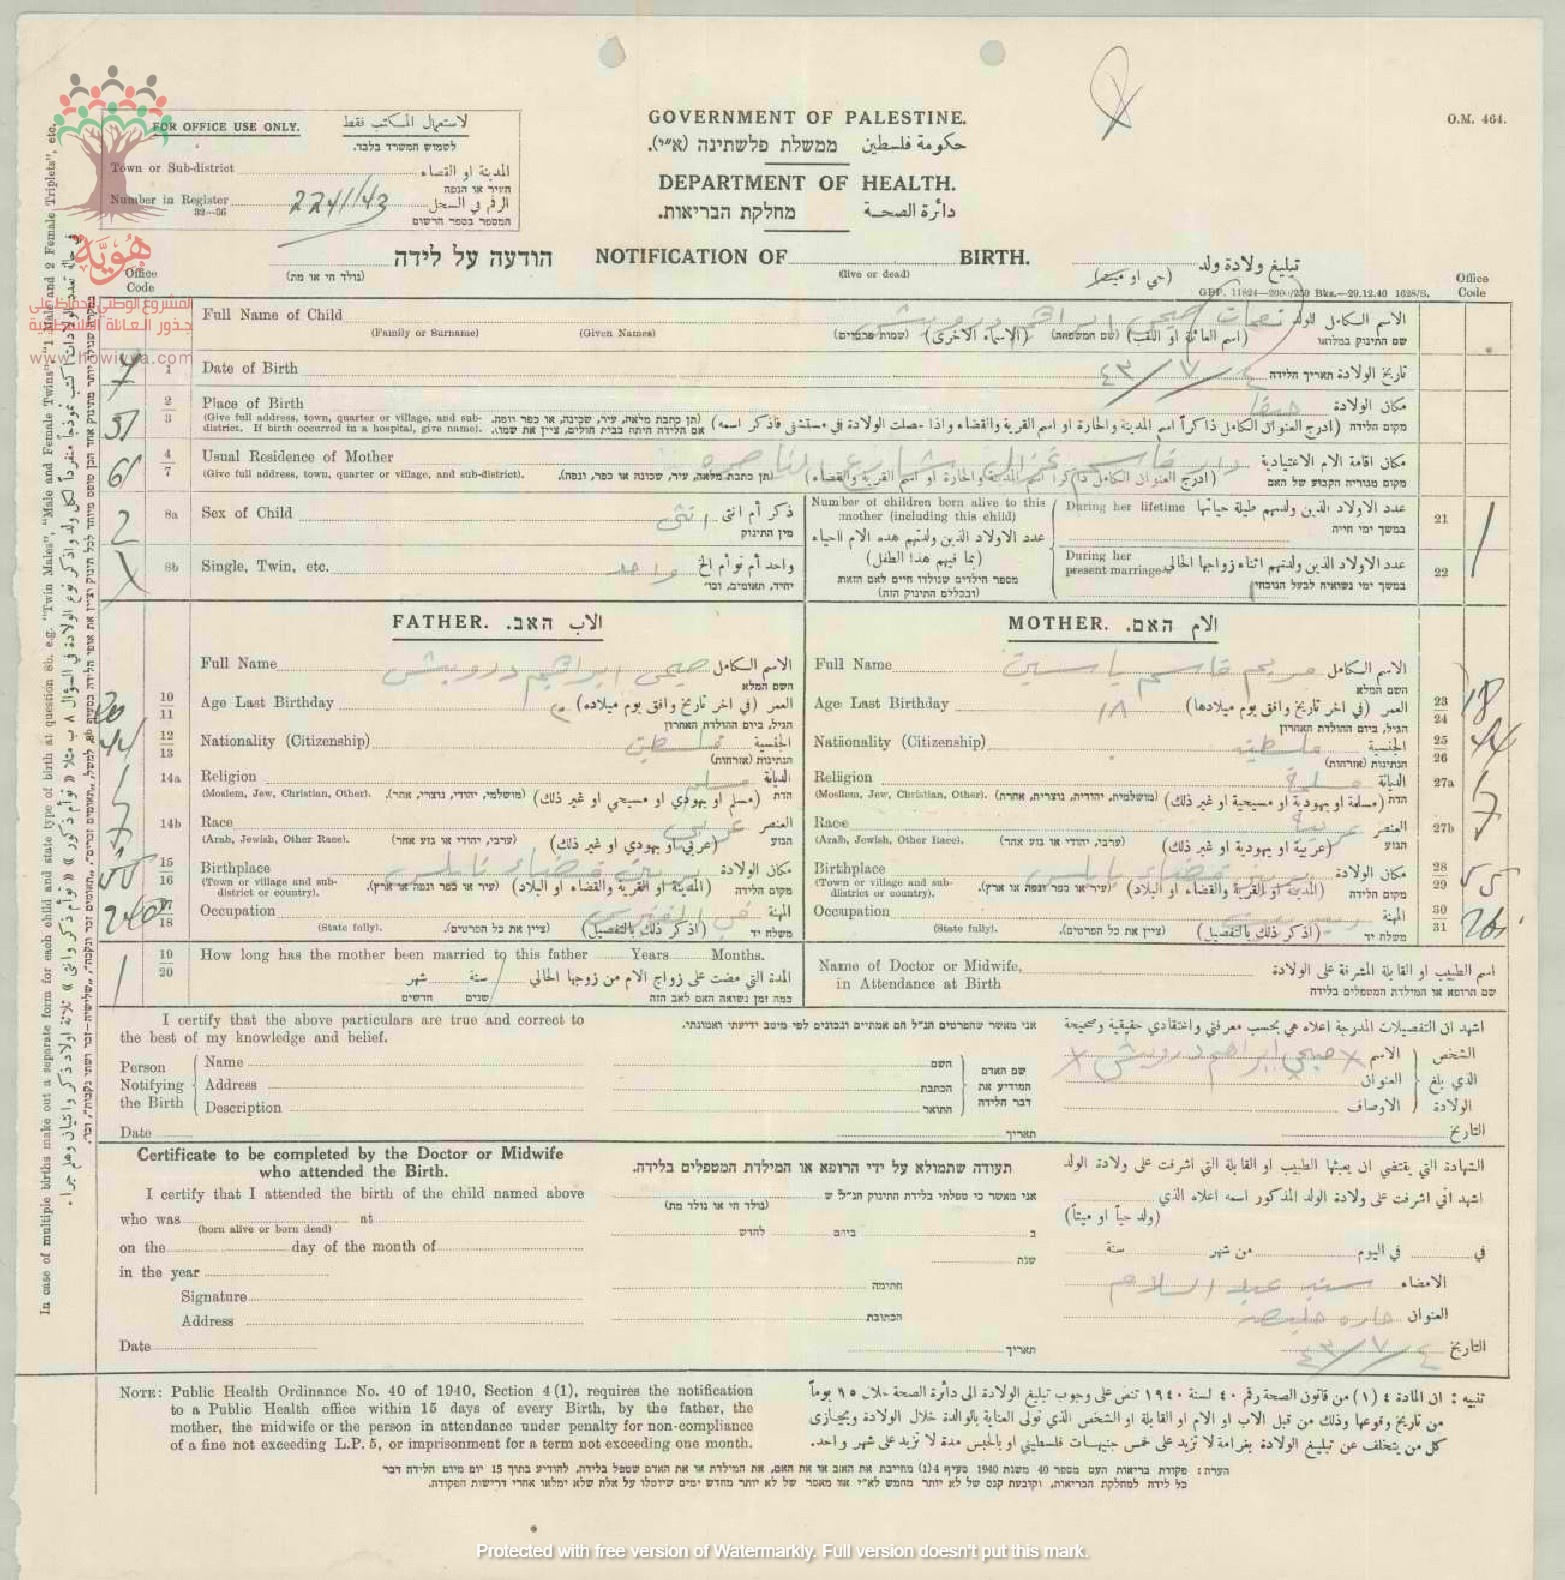 O.M. 464.
FOR OFFICE USE ONLY. لاستعمال المكاتب فقط
לשמוש המשרד בלבד.
Town or Sub-district المدينة او القضاء
העיר או הנפה
Number in Register 2241/43 الرقم في السجل
32—36 המספר בספר הרשום
GOVERNMENT OF PALESTINE.
حكومة فلسطين ממשלת פלשתינה (א״י).
DEPARTMENT OF HEALTH.
دائرة الصحة מחלקת הבריאות.
הודעה על לידה NOTIFICATION OF BIRTH. تبليغ ولادة ولد
(נולד חי או מת) (live or dead) (حي او ميت)
GPP. 11824—2000/250 Bks.—29.12.40 1628/S.
Office Code
Office Code
Full Name of Child الاسم الكامل للولد
(Family or Surname) (Given Names) (שמות פרטיים) (الاسماء الاخرى) (שם המשפחה) (اسم العائلة او اللقب) שם התינוק במלואו
7 1 Date of Birth ٤/٧/٤٣ تاريخ الولادة תאריך הלידה
2 3 Place of Birth حيفا مكان الولادة
(Give full address, town, quarter or village, and sub-district. If birth occurred in a hospital, give name). (תן כתבת מלאה, עיר, שכונה, או כפר ונפה. אם הלידה היתה בבית חולים, ציין את שמו. (ادرج العنوان الكامل ذاكراً اسم المدينة والحارة او اسم القرية والقضاء واذا حصلت الولادة في مستشفى فاذكر اسمه) מקום הלידה
4 7 Usual Residence of Mother مكان اقامة الام الاعتيادية
(Give full address, town, quarter or village, and sub-district). (תן כתבת מלאה, עיר, שכונה או כפר, ונפה). (ادرج العنوان الكامل ذاكرا اسم المدينة والحارة او اسم القرية والقضاء) מקום מגוריה הקבוע של האם
2 8a Sex of Child انثى ذكر أم انثى
מין התינוק
8b Single, Twin, etc. واحد واحد أم توأم الخ
יחיד, תאומים, וכו׳
Number of children born alive to this mother (including this child)
عدد الاولاد الذين ولدتهم هذه الام احياء
(بما فيهم هذا الطفل)
מספר הילדים שנולדו חיים לאם הזאת
(ובכללם התינוק הזה)
During her lifetime عدد الاولاد الذين ولدتهم طيلة حياتها 21
במשך ימי חייה
During her present marriage عدد الاولاد الذين ولدتهم اثناء زواجها الحالي 22
במשך ימי נשואיה לבעל הנוכחי
FATHER. الاب האב.
Full Name صبحي ابراهيم درويش الاسم الكامل
השם המלא
10 11 Age Last Birthday العمر (في اخر تاريخ وافق يوم ميلاده)
הגיל, ביום ההולדת האחרון
44 12 13 Nationality (Citizenship) فلسطيني الجنسية
הנתינות (אזרחות)
14a Religion مسلم الديانة
(Moslem, Jew, Christian, Other). (מושלמי, יהודי, נוצרי, אחר). (مسلم او يهودي او مسيحي او غير ذلك) הדת
14b Race عربي العنصر
(Arab, Jewish, Other Race). (ערבי, יהודי או גזע אחר) (عربي او يهودي او غير ذلك) הגזע
15 16 Birthplace قضاء نابلس مكان الولادة
(Town or village and sub-district or country). (עיר או כפר ונפה או ארץ). (المدينة او القرية والقضاء او البلاد) מקום הלידה
17 18 Occupation المهنة
(State fully). (ציין את כל הפרטים). (اذكر ذلك بالتفصيل) משלח יד
MOTHER. الام האם.
Full Name مريم قاسم ياسين الاسم الكامل
השם המלא
23 24 Age Last Birthday ١٨ العمر (في اخر تاريخ وافق يوم ميلادها) 18
הגיל, ביום ההולדת האחרון
25 26 Nationality (Citizenship) فلسطينية الجنسية 44
הנתינות (אזרחות)
27a Religion مسلمة الديانة
(Moslem, Jew, Christian, Other). (מושלמית, יהודיה, נוצריה, אחרת). (مسلمة او يهودية او مسيحية او غير ذلك) הדת
27b Race عربية العنصر
(Arab, Jewish, Other Race). (ערבי, יהודי או גזע אחר) (عربية او يهودية او غير ذلك) הגזע
28 29 Birthplace قضاء نابلس مكان الولادة 55
(Town or village and sub-district or country). (עיר או כפר ונפה או ארץ). (المدينة او القرية والقضاء او البلاد) מקום הלידה
30 31 Occupation المهنة
(State fully). (ציין את כל הפרטים). (اذكر ذلك بالتفصيل) משלח יד
1 19 20 How long has the mother been married to this father Years Months.
المدة التي مضت على زواج الام من زوجها الحالي سنة شهر
כמה זמן נשואה האם לאב הזה שנים חדשים
Name of Doctor or Midwife, in Attendance at Birth اسم الطبيب او القابلة المشرفة على الولادة
שם הרופא או המילדת המטפלים בלידה
I certify that the above particulars are true and correct to the best of my knowledge and belief.
אני מאשר שהפרטים הנ״ל הם אמתיים ונכונים לפי מיטב ידיעתי ואמונתי.
اشهد ان التفصيلات المدرجة اعلاه هي بحسب معرفتي واعتقادي حقيقية وصحيحة
Person Notifying the Birth
Name
Address
Description
Date
השם
הכתבת
התואר
שם האדם המודיע את דבר הלידה
תאריך
الشخص الذي بلغ الولادة
الاسم صبحي ابراهيم درويش
العنوان
الاوصاف
التاريخ
Certificate to be completed by the Doctor or Midwife
who attended the Birth.
I certify that I attended the birth of the child named above
who was at
(born alive or born dead)
on the day of the month of
in the year
Signature
Address
Date
תעודה שתמולא על ידי הרופא או המילדת המטפלים בלידה.
אני מאשר כי טפלתי בלידת התינוק הנ״ל ש
(נולד חי או נולד מת)
ב ביום לחדש
שנת
חתימה
הכתובת
תאריך
الشهادة التي يقتضي ان يعبئها الطبيب او القابلة التي اشرفت على ولادة الولد
اشهد اني اشرفت على ولادة الولد المذكور اسمه اعلاه الذي
(ولد حياً او ميتاً)
في في اليوم من شهر سنة
الامضاء عبد السلام
العنوان حارة
التاريخ ٤/٧/٤٣
NOTE: Public Health Ordinance No. 40 of 1940, Section 4 (1), requires the notification
to a Public Health office within 15 days of every Birth, by the father, the
mother, the midwife or the person in attendance under penalty for non-compliance
of a fine not exceeding L.P. 5, or imprisonment for a term not exceeding one month.
تنبيه : ان المادة ٤ (١) من قانون الصحة رقم ٤٠ لسنة ١٩٤٠ تنص على وجوب تبليغ الولادة الى دائرة الصحة خلال ١٥ يوماً
من تاريخ وقوعها وذلك من قبل الاب او الام او القابلة او الشخص الذي تولى العناية بالوالدة خلال الولادة ويجازى
كل من يتخلف عن تبليغ الولادة بغرامة لا تزيد على خمس جنيهات فلسطيني او بالحبس مدة لا تزيد على شهر واحد.
הערה: פקודת בריאות העם מספר 40 משנת 1940 סעיף 4(1) מחייבת את האב או את האם, את המילדת או את האדם שטפל בלידה, להודיע בתוך 15 יום מיום הלידה דבר
כל לידה למחלקת הבריאות, וקובעת קנס של לא יותר מחמש לא״י או מאסר של לא יותר מחדש ימים שיוטלו על אלה שלא ימלאו אחרי דרישות הפקודה.
In case of multiple births make out a separate form for each child and state type of birth at question 8b. e.g. "Twin Males", "Male and Female Twins", "1 Male and 2 Female Triplets", etc.
هُويَّة
المشروع الوطني للحفاظ على
جذور العائلة الفلسطينية
www.howiyya.com
Protected with free version of Watermarkly. Full version doesn't put this mark.